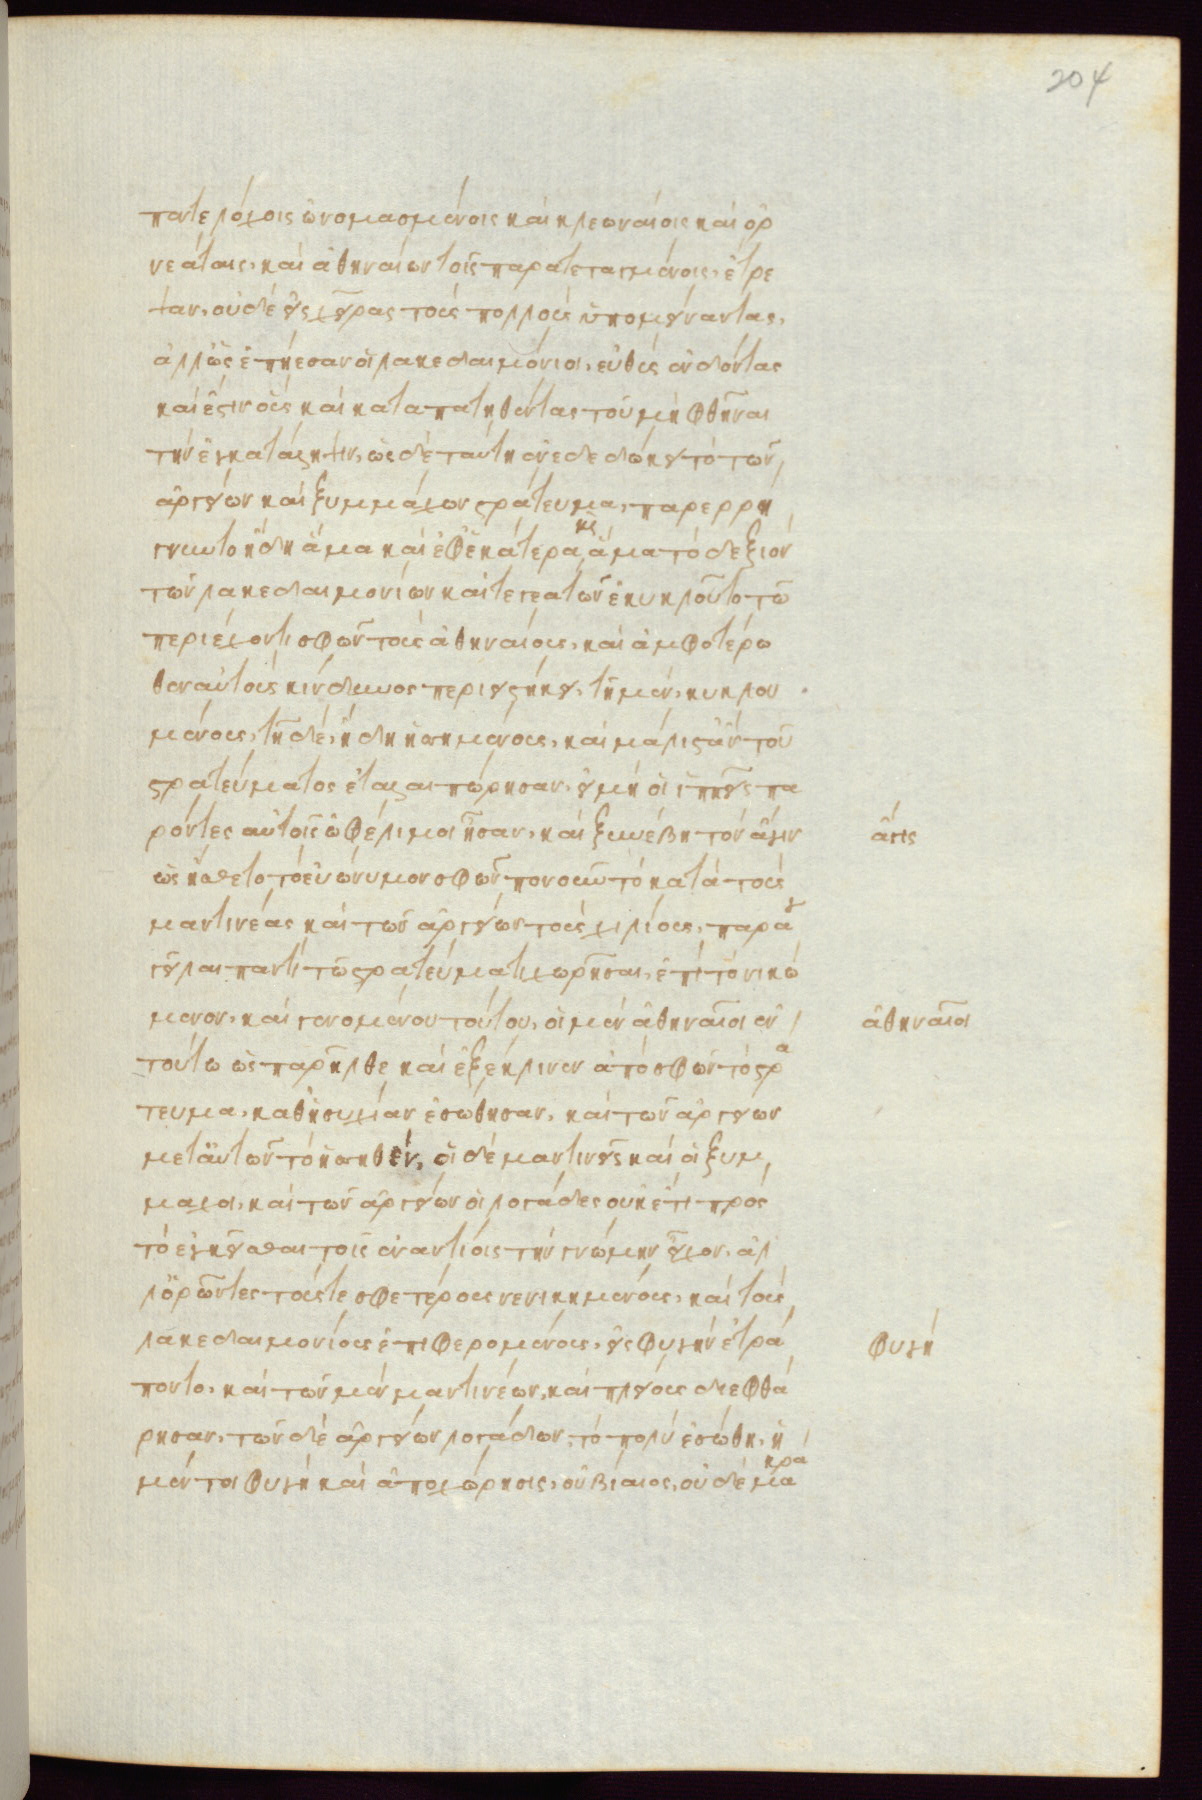 204
πεντελόχοις ὠνομασμένοις καὶ κλεωναίοις καὶ ὀρ
νεάταις, καὶ ἀθηναίων τοῖς παρατεταγμένοις, ἔτρε
ψαν, οὐδὲ εἰς χεῖρας τοὺς πολλοὺς ὑπομείναντας,
ἀλλ' ὡς ἐπῄεσαν οἱ λακεδαιμόνιοι, εὐθὺς ἐνδόντας
καὶ ἔστιν οὓς καὶ καταπατηθέντας τοῦ μὴ φθῆναι
τὴν ἐγκατάληψιν, ὡς δὲ ταύτῃ ἐνεδεδώκει τὸ τῶν
ἀργείων καὶ ξυμμάχων στράτευμα, παρερρή
γνυντο ἤδη ἅμα καὶ ἐφ' ἑκάτερα, κὶ ἅμα τὸ δεξιὸν
τῶν λακεδαιμονίων καὶ τεγεατῶν ἐκυκλοῦτο τῷ
περιέχοντι σφῶν τοὺς ἀθηναίους, καὶ ἀμφοτέρω
θεν αὐτοὺς κίνδυνος περιειστήκει, τῇ μὲν, κυκλου
μένους, τῇ δὲ, ἤδη ἡσσημένους, καὶ μάλιστ' ἂν τοῦ
στρατεύματος ἐταλαιπώρησαν, εἰ μὴ οἱ ἱππεῖς πα
ρόντες αὐτοῖς ὠφέλιμοι ἦσαν, καὶ ξυνέβη τὸν ἆγιν
ἆγις
ὡς ᾔσθετο τὸ εὐώνυμον σφῶν πονοῦν τὸ κατὰ τοὺς
μαντινέας καὶ τῶν ἀργείων τοὺς χιλίους, παραγ
γεῖλαι παντὶ τῷ στρατεύματι χωρῆσαι, ἐπὶ τὸ νικώ
μενον, καὶ γενομένου τούτου, οἱ μὲν ἀθηναῖοι ἐν
ἀθηναῖοι
τούτῳ ὡς παρῆλθε καὶ ἐξέκλινεν ἀπὸ σφῶν τὸ στρά
τευμα, καθ' ἡσυχίαν ἐσώθησαν, καὶ τῶν ἀργείων
μετ' αὐτῶν τὸ ἡσσηθέν, οἱ δὲ μαντινεῖς καὶ οἱ ξυμ
μαχοι, καὶ τῶν ἀργείων οἱ λογάδες οὐκέτι πρὸς
τὸ ἐγκεῖσθαι τοῖς ἐναντίοις τὴν γνώμην εἶχον, ἀλ
λ' ὁρῶντες τούς τε σφετέρους νενικημένους, καὶ τοὺς
λακεδαιμονίους ἐπιφερομένους, εἰς φυγὴν ἐτρά
φυγή
ποντο, καὶ τῶν μὲν μαντινέων, καὶ πλείους διεφθά
ρησαν, τῶν δὲ ἀργείων λογάδων, τὸ πολὺ ἐσώθη, ἡ
μέντοι φυγὴ καὶ ἀποχώρησις, οὐ βίαιος, οὐδὲ μακρά